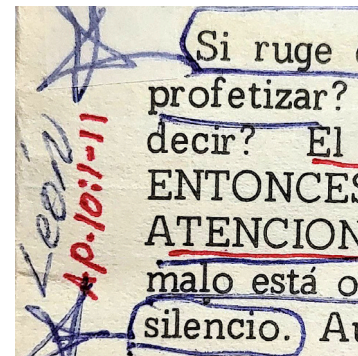 Si ruge
profetizar?
decir? El
ENTONCES
ATENCION
malo está
silencio.
León
Ap. 10:1-11